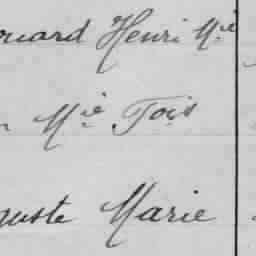 ouard Henri Mie
Mie Fois
guste Marie